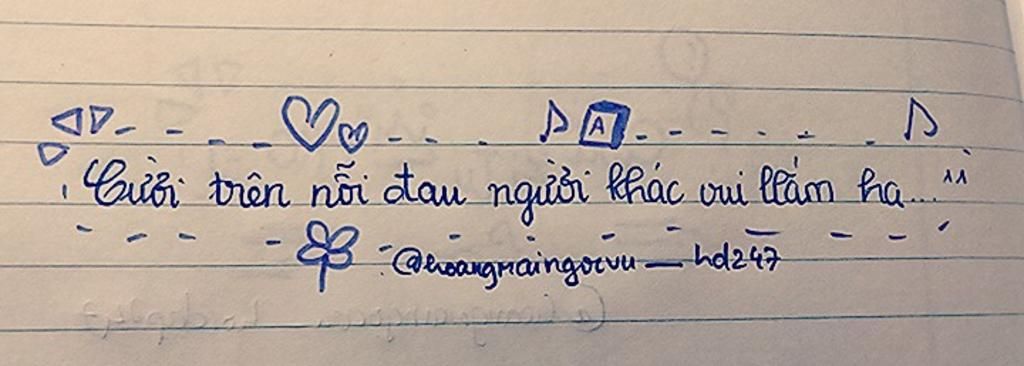 A
Cười trên nỗi đau người khác vui lắm hạ..."
@hoangmaingocvu_hd247